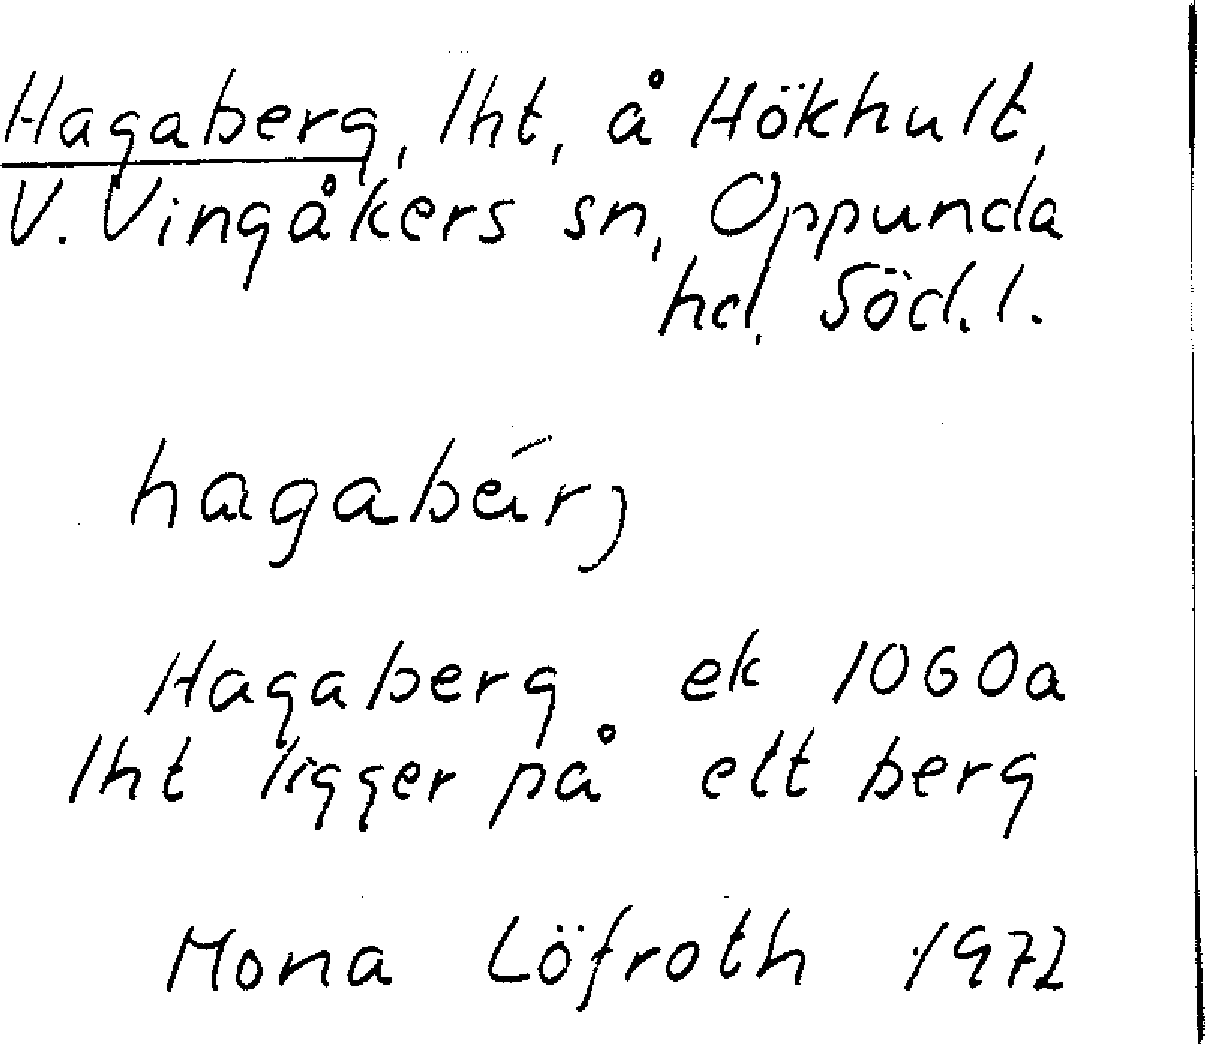 Hagaberg, lht, å Hökhult,
V. Vingåkers sn, Oppunda
hd, Söd. l.
hagabér,
Hagaberg ek 1060a
lht ligger på ett berg
Mona Löfroth 1972